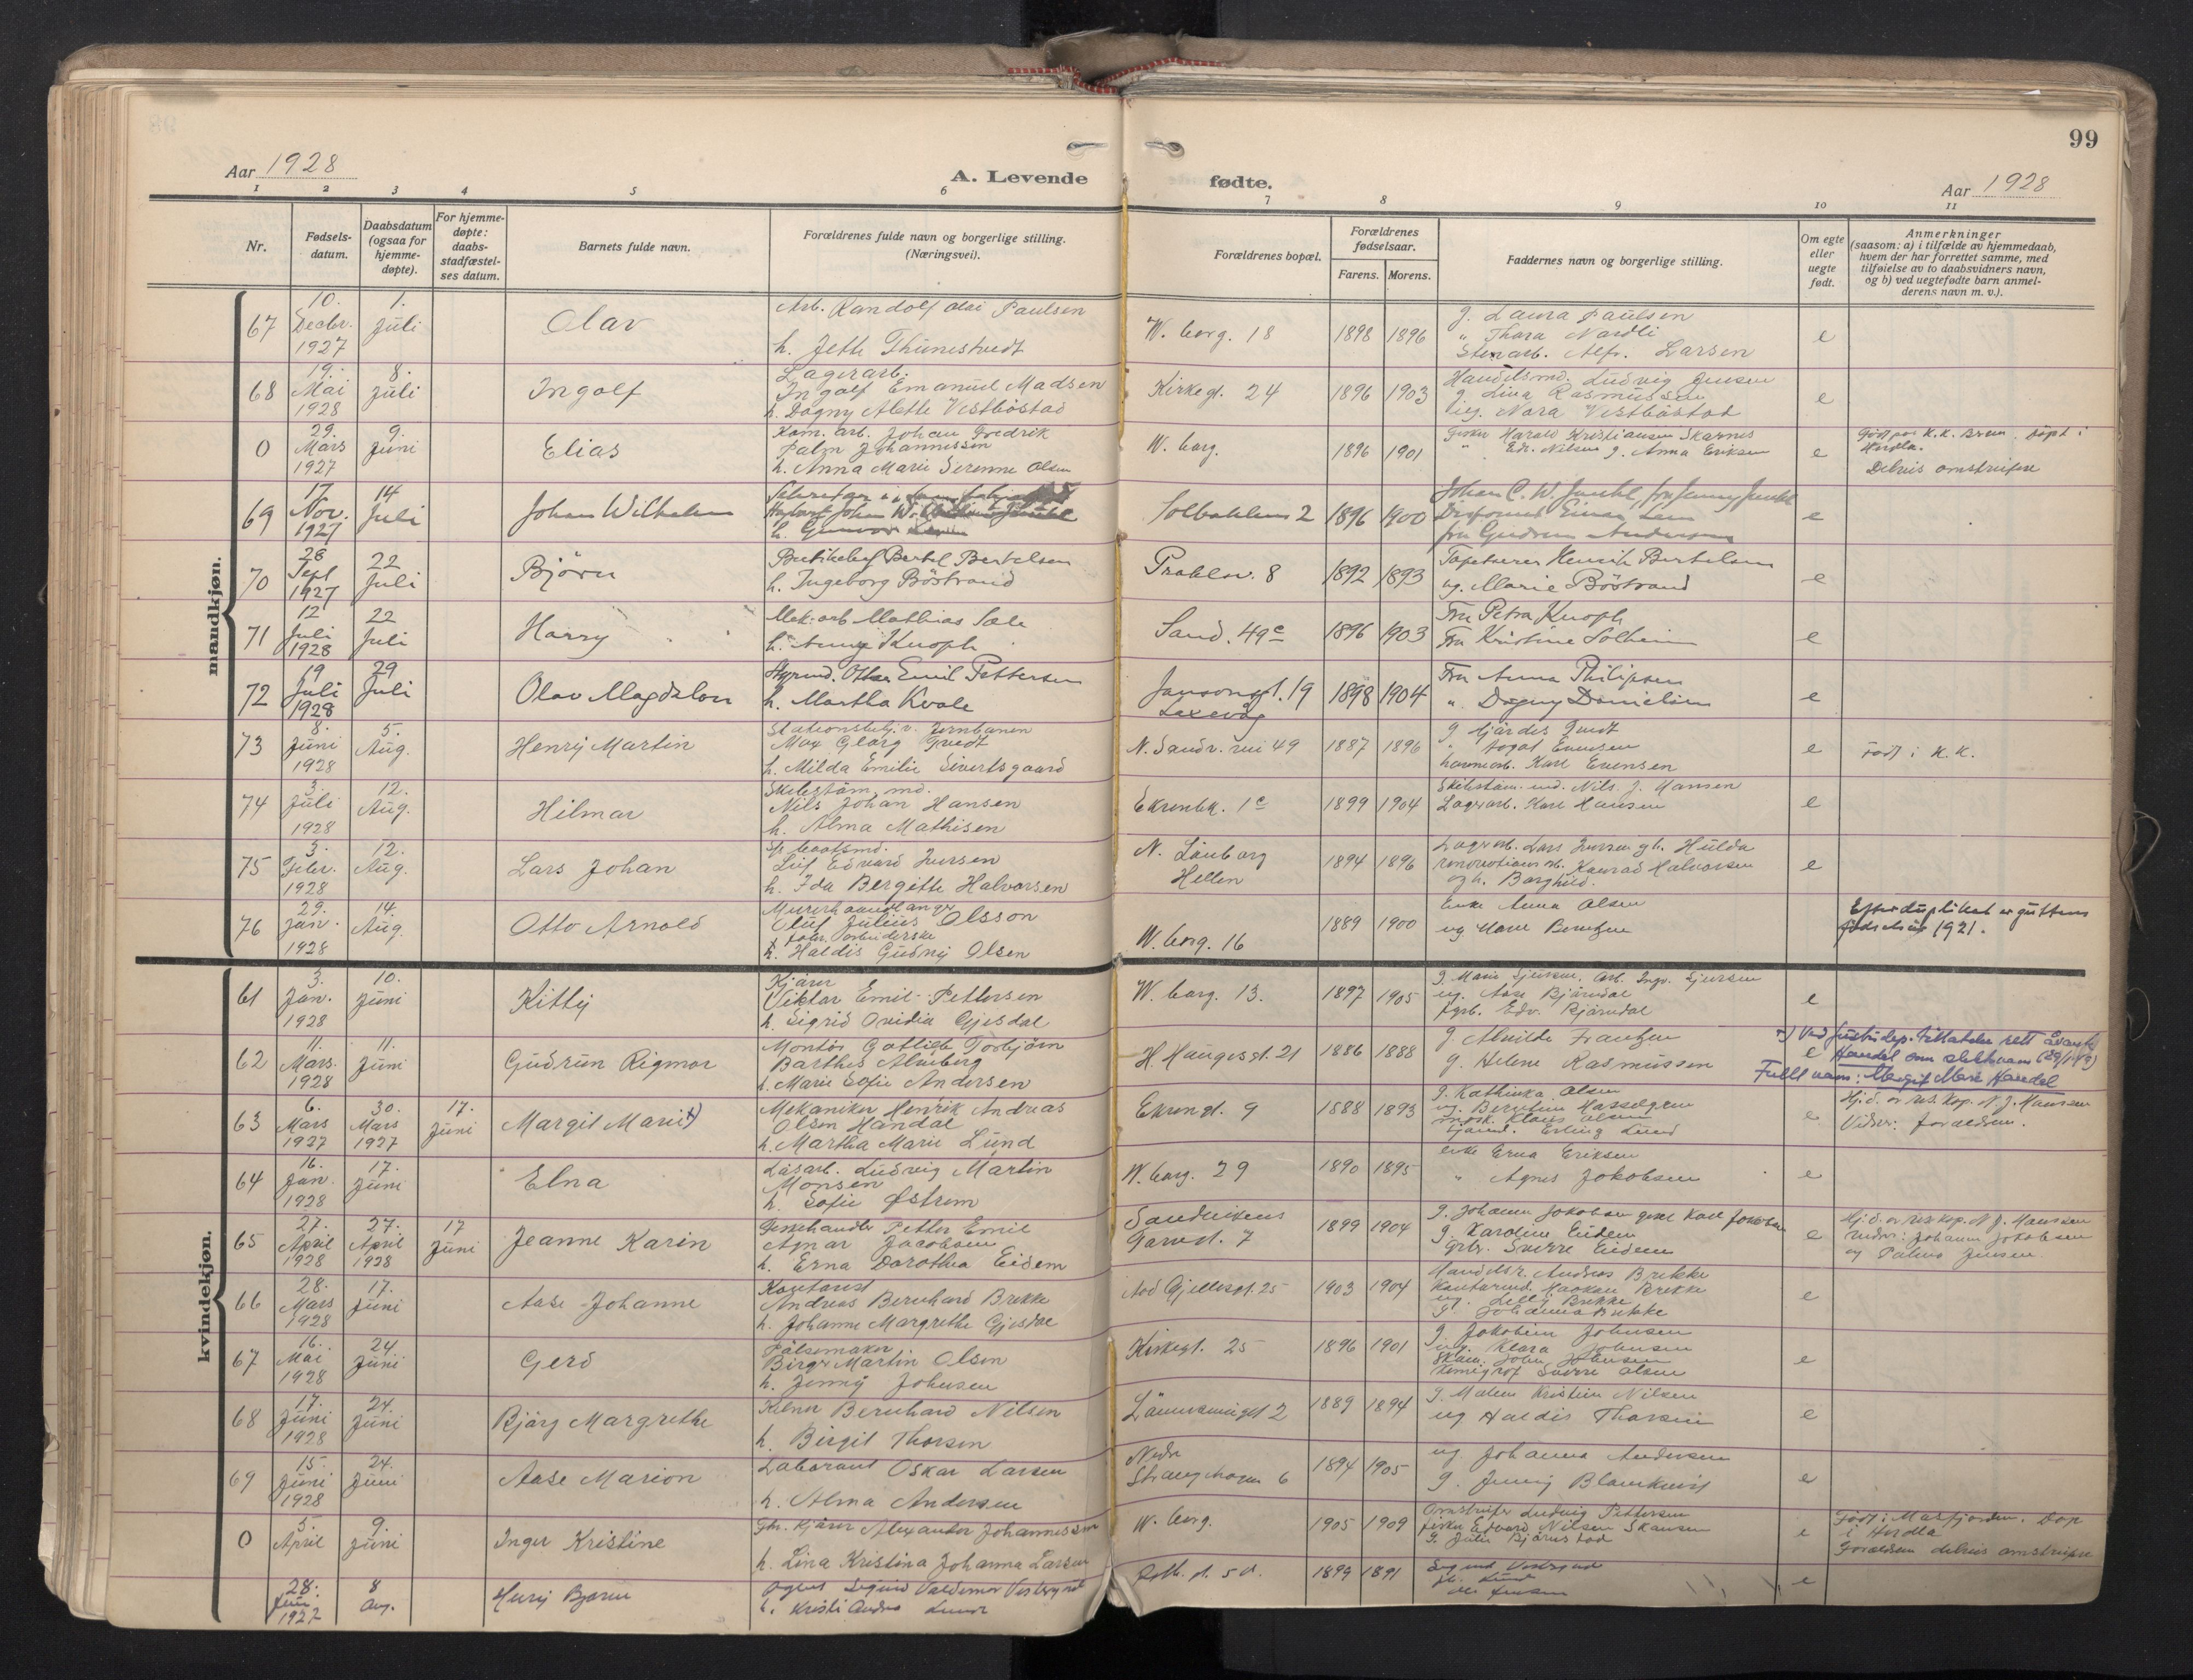 99
Aar 1928
A. Levende
fødte.
Aar 1928
1 2 3 4 5 6 7 8 9 10 11
Nr.
Fødsels-
datum.
Daabsdatum
(ogsaa for
hjemme-
døpte).
For hjemme-
døpte:
daabs-
stadfæstel-
ses datum.
Barnets fulde navn.
Forældrenes fulde navn og borgerlige stilling.
(Næringsvei).
Forældrenes bopæl.
Forældrenes
fødselsaar.
Farens. Morens.
Faddernes navn og borgerlige stilling.
Om egte
eller
uegte
født.
Anmerkninger
(saasom: a) i tilfælde av hjemmedaab,
hvem der har forrettet samme, med
tilføielse av to daabsvidners navn,
og b) ved uegtefødte barn anmel-
derens navn m. v.).
mandkjøn.
67
10.
Decbr.
1927
1.
Juli
Olav
Arb. Randolf Paulsen
h. Jette Thunestvedt
W. borg. 18
1898 1896
g. Laura Paulsen
" Thora Nordli
Stenarb. Alfr. Larsen
e
68
19.
Mai
1928
8.
Juli
Ingolf
Lagerarb.
Ingolf Emanuel Madsen
h. Dagny Alette Vestbøstad
Kirkegt. 24
1896 1903
Handelsmd. Ludvig Jensen
g. Lina Rasmussen
ug. Nora Vestbøstad
e
0
29.
Mars
1927
9.
Juni
Elias
Kom. arb. Johan Fredrik
Palm Johannissen
h. Anna Marie Serenne Olsen
W. borg.
1896 1901
Fisker Harald Kristiansen Skarnes
" Edv. Nilsen g. Anna Eriksen
e
Født paa K.K. Brem. Døpt i
Herdla.
Delvis omstreifere
69
17
Nov.
1927
14
Juli
Johan Wilhelm
Solbakken 2
1896 1900
Johan C. W. Juuhl, fru Jenny Juuhl
fru Gudrun Andersen
e
70
28
Sept
1927
22
Juli
Bjørn
Butikchef Bertel Bertelsen
h. Ingeborg Böstrand
Prahlsv. 8
1892 1893
Tapetserer Henrik Bertelsen
ug. Marie Böstrand
e
71
12
Juli
1928
22
Juli
Harry
Mek. arb. Mathias Sæle
h. Anny Knoph
Sand. 49c
1896 1903
Fru Petra Knoph
Fru Kristine Solheim
e
72
19
Juli
1928
29
Juli
Olav Magdalon
Styrmd. Emil Pettersen
h. Martha Kvale
Jansongt. 19
Laxevåg
1898 1904
Fru Anna Philipsen
" Dagny Danielsen
e
73
8.
Juni
1928
5.
Aug.
Henrÿ Martin
Stationsbetj. v. Jernbanen
Max Georg
h. Milda Emilie Sivertsgaard
N. Sandv. vei 49
1887 1896
g.
" Evensen
havnearb. Karl Evensen
e
Født i K.K.
74
3.
Juli
1928
12.
Aug.
Hilmar
Skibstøm. md.
Nils Johan Hansen
h. Alma Mathisen
Ekrenbk. 1c
1899 1904
Skibstøm. md. Nils J. Hansen
Lagerarb. Karl Hansen
e
75
3.
Febr.
1928
12.
Aug.
Lars Johan
Baatsmd.
Leif Edvard Iversen
h. Ida Bergitte Halvorsen
N. Lönborg
Hellen
1894 1896
Lagerarb. Lars Iversen g h. Hulda
renovations arb. Konrad Halvorsen
og h. Borghild.
e
76
29.
Jan.
1928
14.
Aug.
Otto Arnold
Murerhaandlanger
Oluf Julius Olsson
h. Haldis Gudny Olsen
W. borg. 16
1889 1900
Enke Anna Olsen
ug. Berntzen
Efter duplikat er guttens
fødselsår 1921.
kvindekjøn.
61
3.
Jan.
1928
10.
Juni
Kitty
Kjører
Viktor Emil Pettersen
h. Sigrid Ovidia Gjesdal
W. borg. 13.
1897 1905
g. Marie Sjursen, arb. Ingv. Sjursen
ug. Aase Bjørndal
Edv. Bjørndal
e
62
11.
Mars.
1928
11.
Juni
Gudrun Rigmor
Montør Gottlieb Torbjørn
Barthes Alneberg
h. Marie Sofie Andersen
H. Haugesgt. 21
1886 1888
g. Alvilde Frantzen
g. Helene Rasmussen
e
x) Ved justisdep. tillatelse rett å anta
Handel som slektsnavn
Fullt navn: Margit Marie Handel
63
6.
Mars
1927
30.
Mars
1927
17.
Juni
Margit Marie x)
Mekaniker Henrik Andreas
Olsen Handal
h. Martha Marie Lund
Ekrengt. 9
1888 1893
g. Kathinka Olsen
ug. Bergitte Hasselgren
Erling Lund
e
Hj. d. av res. kap. N. J. Hanssen
Vidner: forældrene.
64
16.
Jan.
1928
17.
Juni
Elna
Løsarb. Ludvig Martin
Monsen
h. Sofie Østrem
W. borg. 29
1890 1895
enke Erna Eriksen
" Agnes Jokobsen
e
65
27.
April
1928
27.
April
1928
17
Juni
Jeanne Karin
Petter Emil
Agnar Jacobsen
h. Erna Dorothea Eidem
Sandvikens
Garvest. 7
1899 1904
g. Johanne Jakobsen Karl Jakobsen
g. Karoline Eidem
Sverre Eidem
e
Hj. d. av res. kap. N. J. Hanssen
vidner: Johanne Jokobsen
og Palma Jensen.
66
28.
Mars
1928
17.
Juni
Aase Johanne
Kontorist
Andreas Bernhard Brekke
h. Johanne Margrethe Gjesdal
Aad Gjellesgt. 25
1903 1904
Handelsr. Andreas Brekke
Kontormd. Haakon Brekke
ug. Lelly Brekke
g. Johanna Brekke
e
67
16.
Mai
1928
24
Juni
Gerd
Pølsemaker
Birger Martin Olsen
h. Jenny Johnsen
Kirkegt. 25
1896 1901
g. Jokobine Johnsen
ug. Klara Johnsen
John Johnsen
Kemigraf Sverre Olsen
e
68
17.
Juni
1928
24.
Juni
Bjørg Margrethe
Kelner Bernhard Nilsen
h. Birgit Thorsen
1889 1894
g. Malene Kristine Nilsen
ug Haldis Thorsen
e
69
15.
Juni
1928
24.
Juni
Aase Marion
Laborant Oskar Larsen
h. Alma Andersen
Nedre
Stangehagen 6
1894 1905
ug Johanna Andersen
g. Jenny Blomkvist
e
0
5.
April
9.
Juni
Inger Kristine
Fhv. kjører Alexander Johannessen
h. Lina Kristina Johanna Larsen
W. borg.
1905 1909
Omstreifer Ludvig Pettersen
fisker Edvard Nilsen Skansen
g. Julie Bjørnstad
e
Født i Masfjorden. Døp
i Herdla
Forældrene delvis omstreifere
28.
1927
8
Aug.
Henrij Bjarne
Sigurd Valdemar
h. Kristi Andrea Lund
1899 1891
e